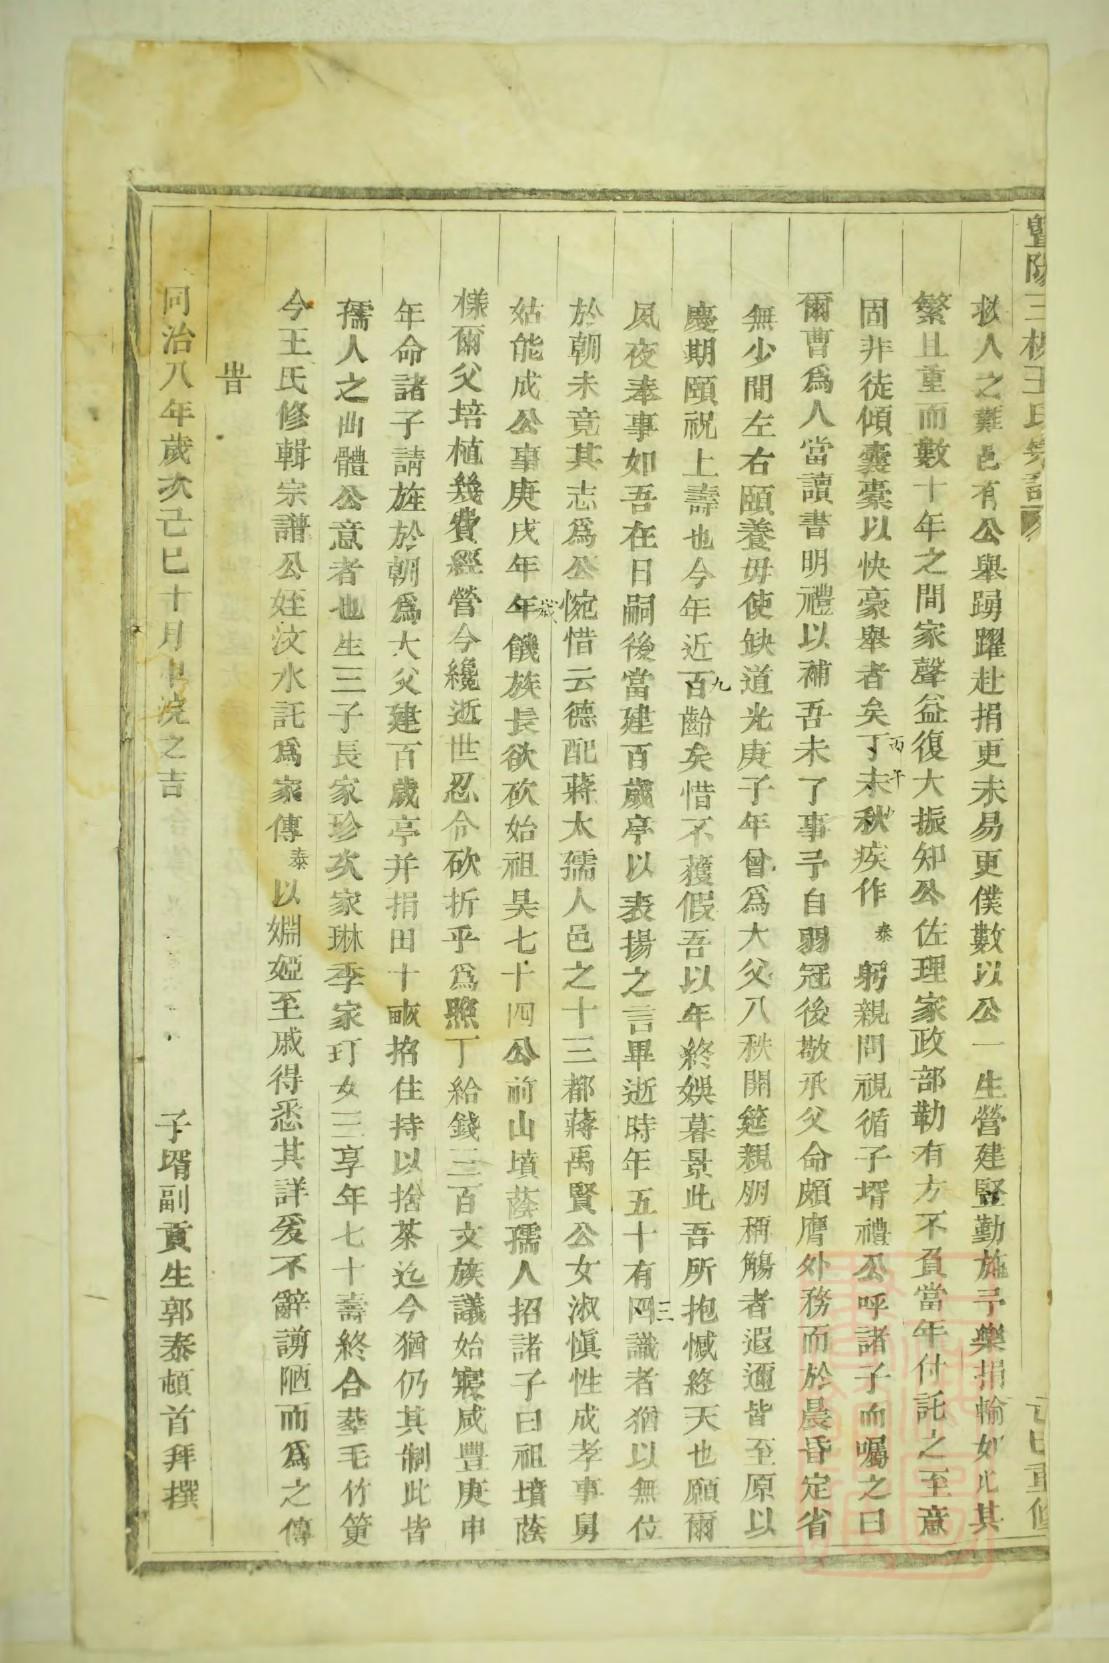 救人之難邑有公舉踴躍赴捐更未易更僕數以公一生營建豎勤施予樂捐輸如此其
繁且重而數十年之間家聲益復大振知公佐理家政部勒有方不負當年付託之至意
固非徒傾囊橐以快豪舉者矣丁未秋疾作泰躬親問視循子壻禮公呼諸子而囑之曰
丙午
爾曹爲人當讀書明禮以補吾未了事予自弱冠後敬承父命頗膺外務而於晨昏定省
無少間左右頤養毋使缺道光庚子年曾爲大父八秩開筵親朋稱觴者遐邇皆至原以
慶期頤祝上壽也今年近百齡矣惜不獲假吾以年終娛暮景此吾所抱憾終天也願爾
九
夙夜奉事如吾在日嗣後當建百歲亭以表揚之言畢逝時年五十有四識者猶以無位
三
於朝未竟其志爲公惋惜云德配蔣太孺人邑之十三都蔣禹賢公女淑愼性成孝事舅
姑能成公事庚戌年年饑族長欲砍始祖昊七十四公前山墳蔭孺人招諸子曰祖墳蔭
歲
樣爾父培植幾費經營今纔逝世忍令砍折乎爲照丁給錢三百文族議始寢咸豐庚申
年命諸子請旌於朝爲大父建百歲亭并捐田十畝招住持以捨茶迄今猶仍其制此皆
孺人之曲體公意者也生三子長家珍次家琳季家玎女三享年七十壽終合葬毛竹筻
今王氏修輯宗譜公姪汶水託爲家傳泰以婣婭至戚得悉其詳爰不辭譾陋而爲之傳
旹
同治八年歲次己巳十月中浣之吉
子壻副貢生郭泰頓首拜撰